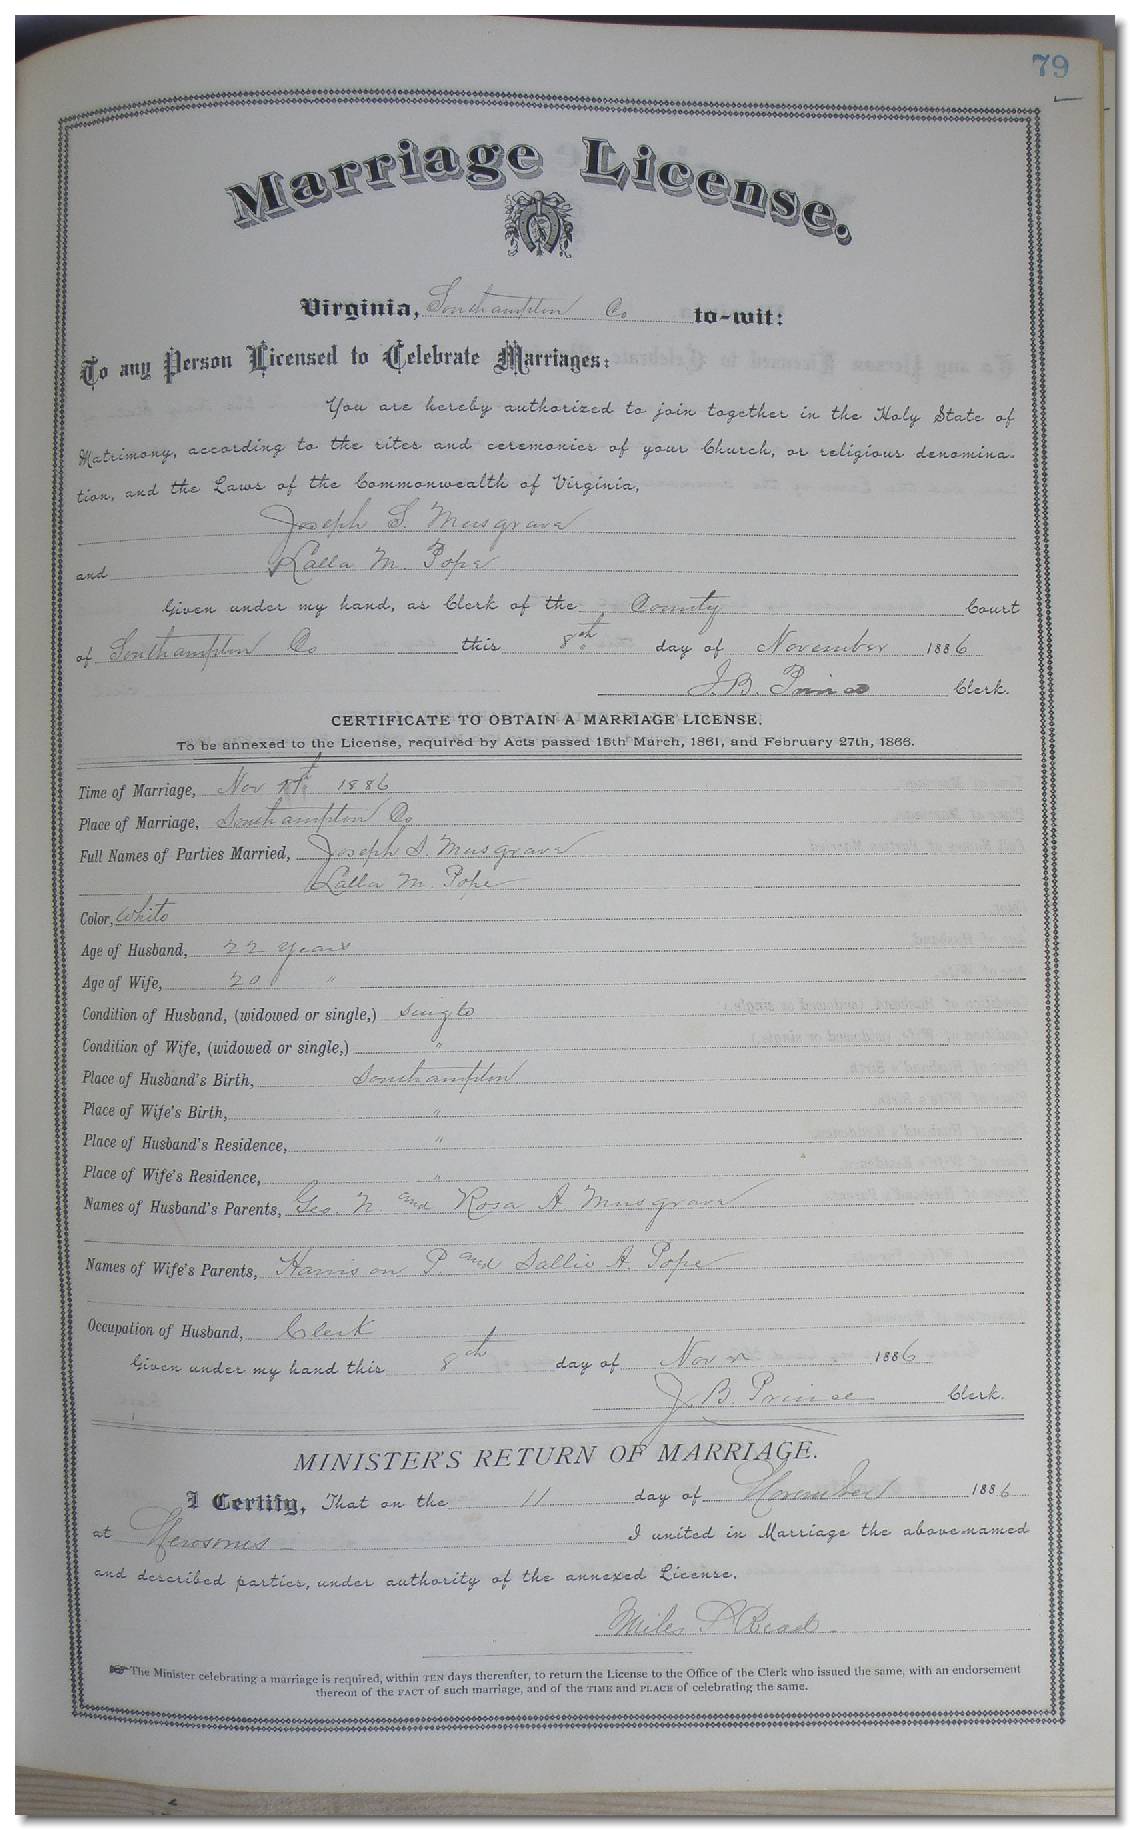 79
Marriage License.
Virginia, Southampton Co to-wit:
To any Person Licensed to Celebrate Marriages:
You are hereby authorized to join together in the Holy State of
Matrimony, according to the rites and ceremonies of your Church, or religious denomina-
tion, and the Laws of the Commonwealth of Virginia,
Joseph S. Musgrave
and Lalla M. Pope
Given under my hand, as Clerk of the County Court
of Southampton Co this 8th day of November 1886
J. B. Prince Clerk.
CERTIFICATE TO OBTAIN A MARRIAGE LICENSE.
To be annexed to the License, required by Acts passed 15th March, 1861, and February 27th, 1866.
Time of Marriage, Nov 1886
Place of Marriage, Southampton Co
Full Names of Parties Married, Joseph S. Musgrave
Lalla M. Pope
Color, White
Age of Husband, 22 years
Age of Wife, 20 "
Condition of Husband, (widowed or single,) single
Condition of Wife, (widowed or single,) "
Place of Husband's Birth, Southampton
Place of Wife's Birth, "
Place of Husband's Residence, "
Place of Wife's Residence, "
Names of Husband's Parents, Geo. N. and Rosa A Musgrave
Names of Wife's Parents, Harrison P. and Sallie A. Pope
Occupation of Husband, Clerk
Given under my hand this 8th day of Novr 1886
J. B. Prince Clerk.
MINISTER'S RETURN OF MARRIAGE.
I Certify, That on the 11 day of November 1886
at I united in Marriage the above-named
and described parties, under authority of the annexed License.
Miles Read
The Minister celebrating a marriage is required, within TEN days thereafter, to return the License to the Office of the Clerk who issued the same, with an endorsement
thereon of the FACT of such marriage, and of the TIME and PLACE of celebrating the same.